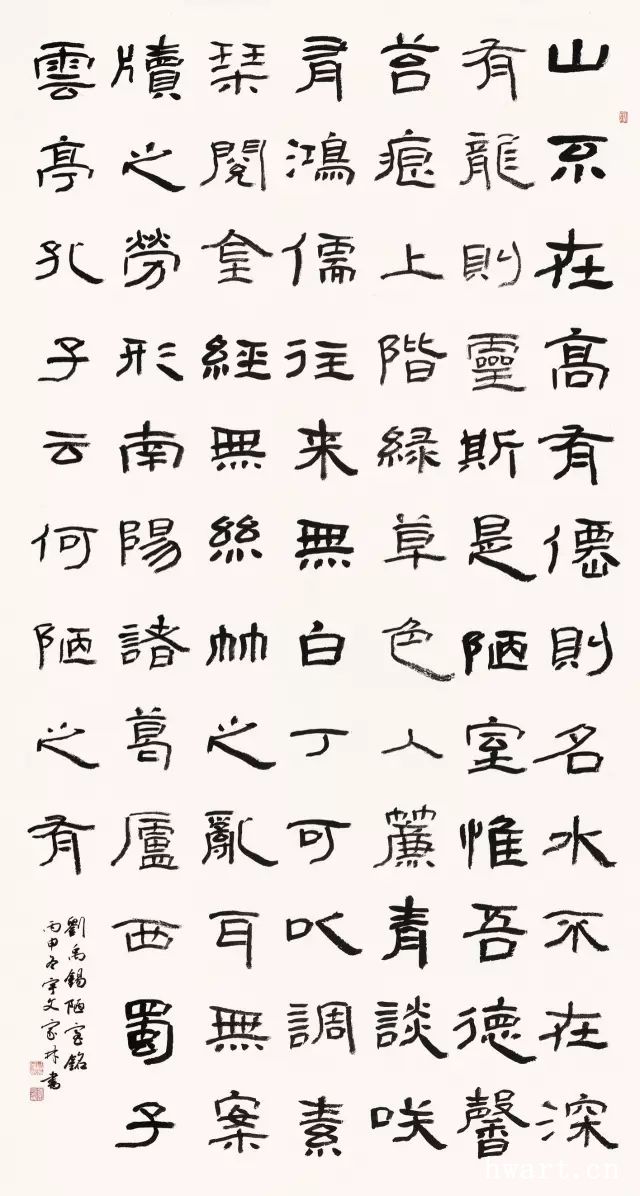 山不在高有僊則名水不在深
有龍則靈斯是陋室惟吾德馨
苔痕上階緑草色入簾青談咲
有鴻儒往来無白丁可以調素
琹閱金經無絲竹之亂耳無案
牘之勞形南陽諸葛廬西蜀子
雲亭孔子云何陋之有
劉禹錫陋室銘
丙申冬宇文家林書
hwart.cn